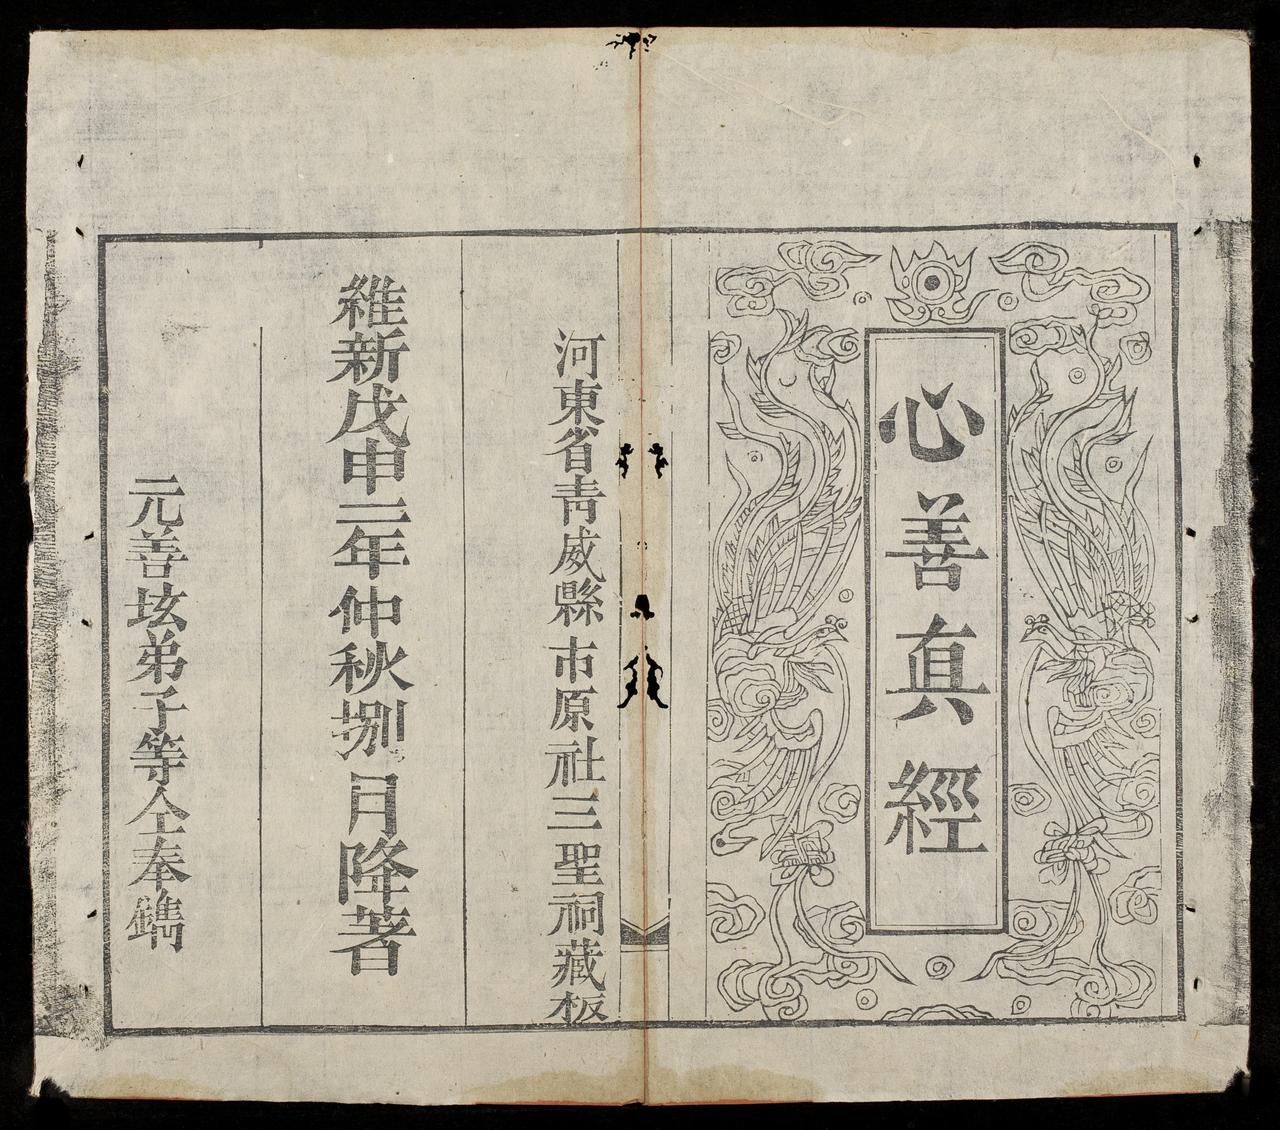 心善真經
河東省靑威縣市原社三聖祠藏板
維新戊申二年仲秋捌月降著
元善玹弟子等仝奉鐫